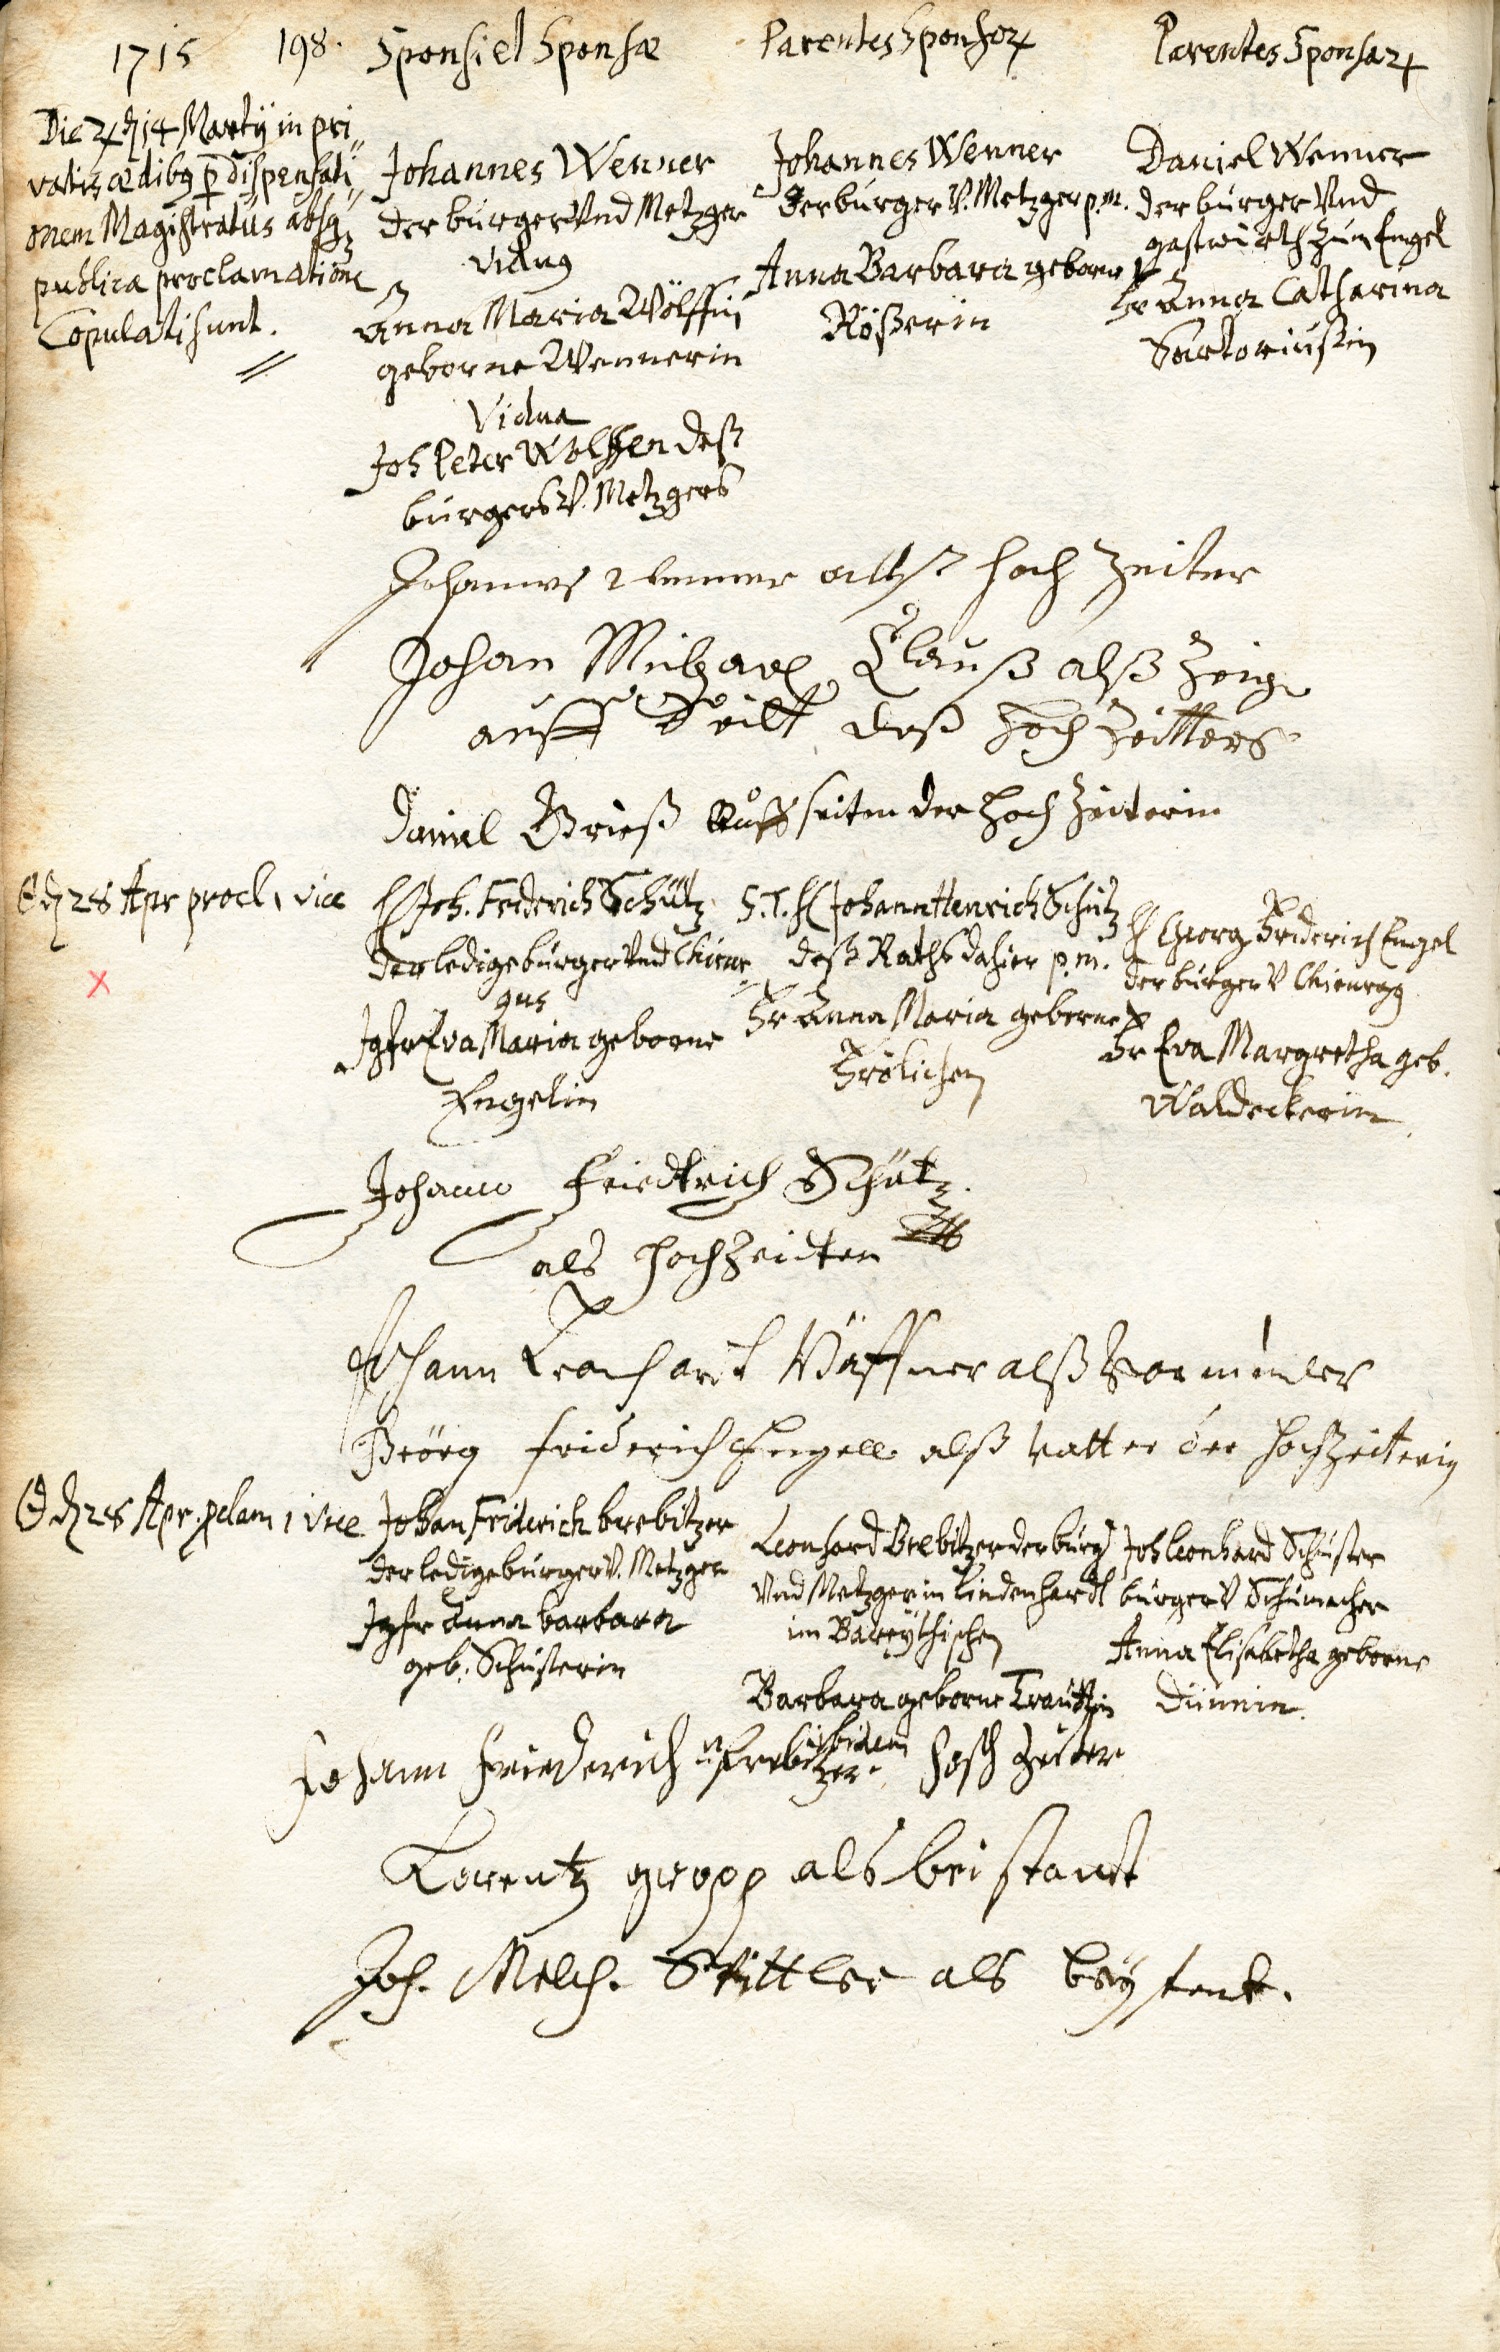 1715
198.
Sponsi et Sponsæ
Parentes Sponsor
Parentes Sponsar
Die ♃ d 14 Martÿ in pri
vatis ædibq p dispensati
onem Magistratus absq
publica proclamatione
Copulati sunt.
Johannes Wenner
der bürger Vnd Metzger
vidug
Anna Maria Wölffin
geborne Wennerin
Vidua
Joh Peter Wolffen deß
bürgers V. Metzgers
Johannes Wenner
der bürger V. Metzger p.m.
Anna Barbara geborne
Rößerin
Daniel Wenner
der bürger Vnd
gastwürth zum Engel
Fr Anna Catharina
Sartoriußin
Johannes Wenner alß hoch Zeiter
Johan Michael Clauß alß Zeig
auff seit deß Hoch Zeitters
Daniel Grieß auff seiten der hoch Zeiterin
☉ d 28 Apr procl 1 vice
H Joh. Friderich Schütz
der ledige bürger Vnd Chirur
gus
Jgfr Eva Maria geborne
Engelin
S. T. H Johann Henrich Schütz
deß Raths dahier p.m.
Fr Anna Maria geborne
Frölichen
H Georg Friderich Engel
der bürger V Chirurgg
Fr Eva Margretha geb.
Waldeckerin
Johann Friedtrich Schütz.
als hochzeidter
Johann Leonhardt Väffner alß Vormünder
Geörg friderich Engell alß vatter der hochzeiterin
☉ d 28 Apr. pclam 1 Vice
Johan Friderich brebitzer
der ledige bürger V. Metzger
Jgfr Anna barbara
geb. Schusterin
Leonhard Brebitzer der bürg
Vnd Metzger in Lindenhardt
im Bareÿthischen
Barbara geborne Trautt in
ibidem
Joh Leonhard Schuster
bürger V Schumacher
Anna Elisabetha geborne
Dünnin.
Johann Friederich Prebitzer hoch zeiter
Lorentz gropp als beistandt
Joh. Melch. Stittler als beÿstant.